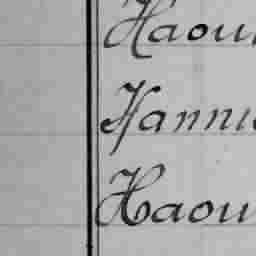 Haou
Hannu
Haou